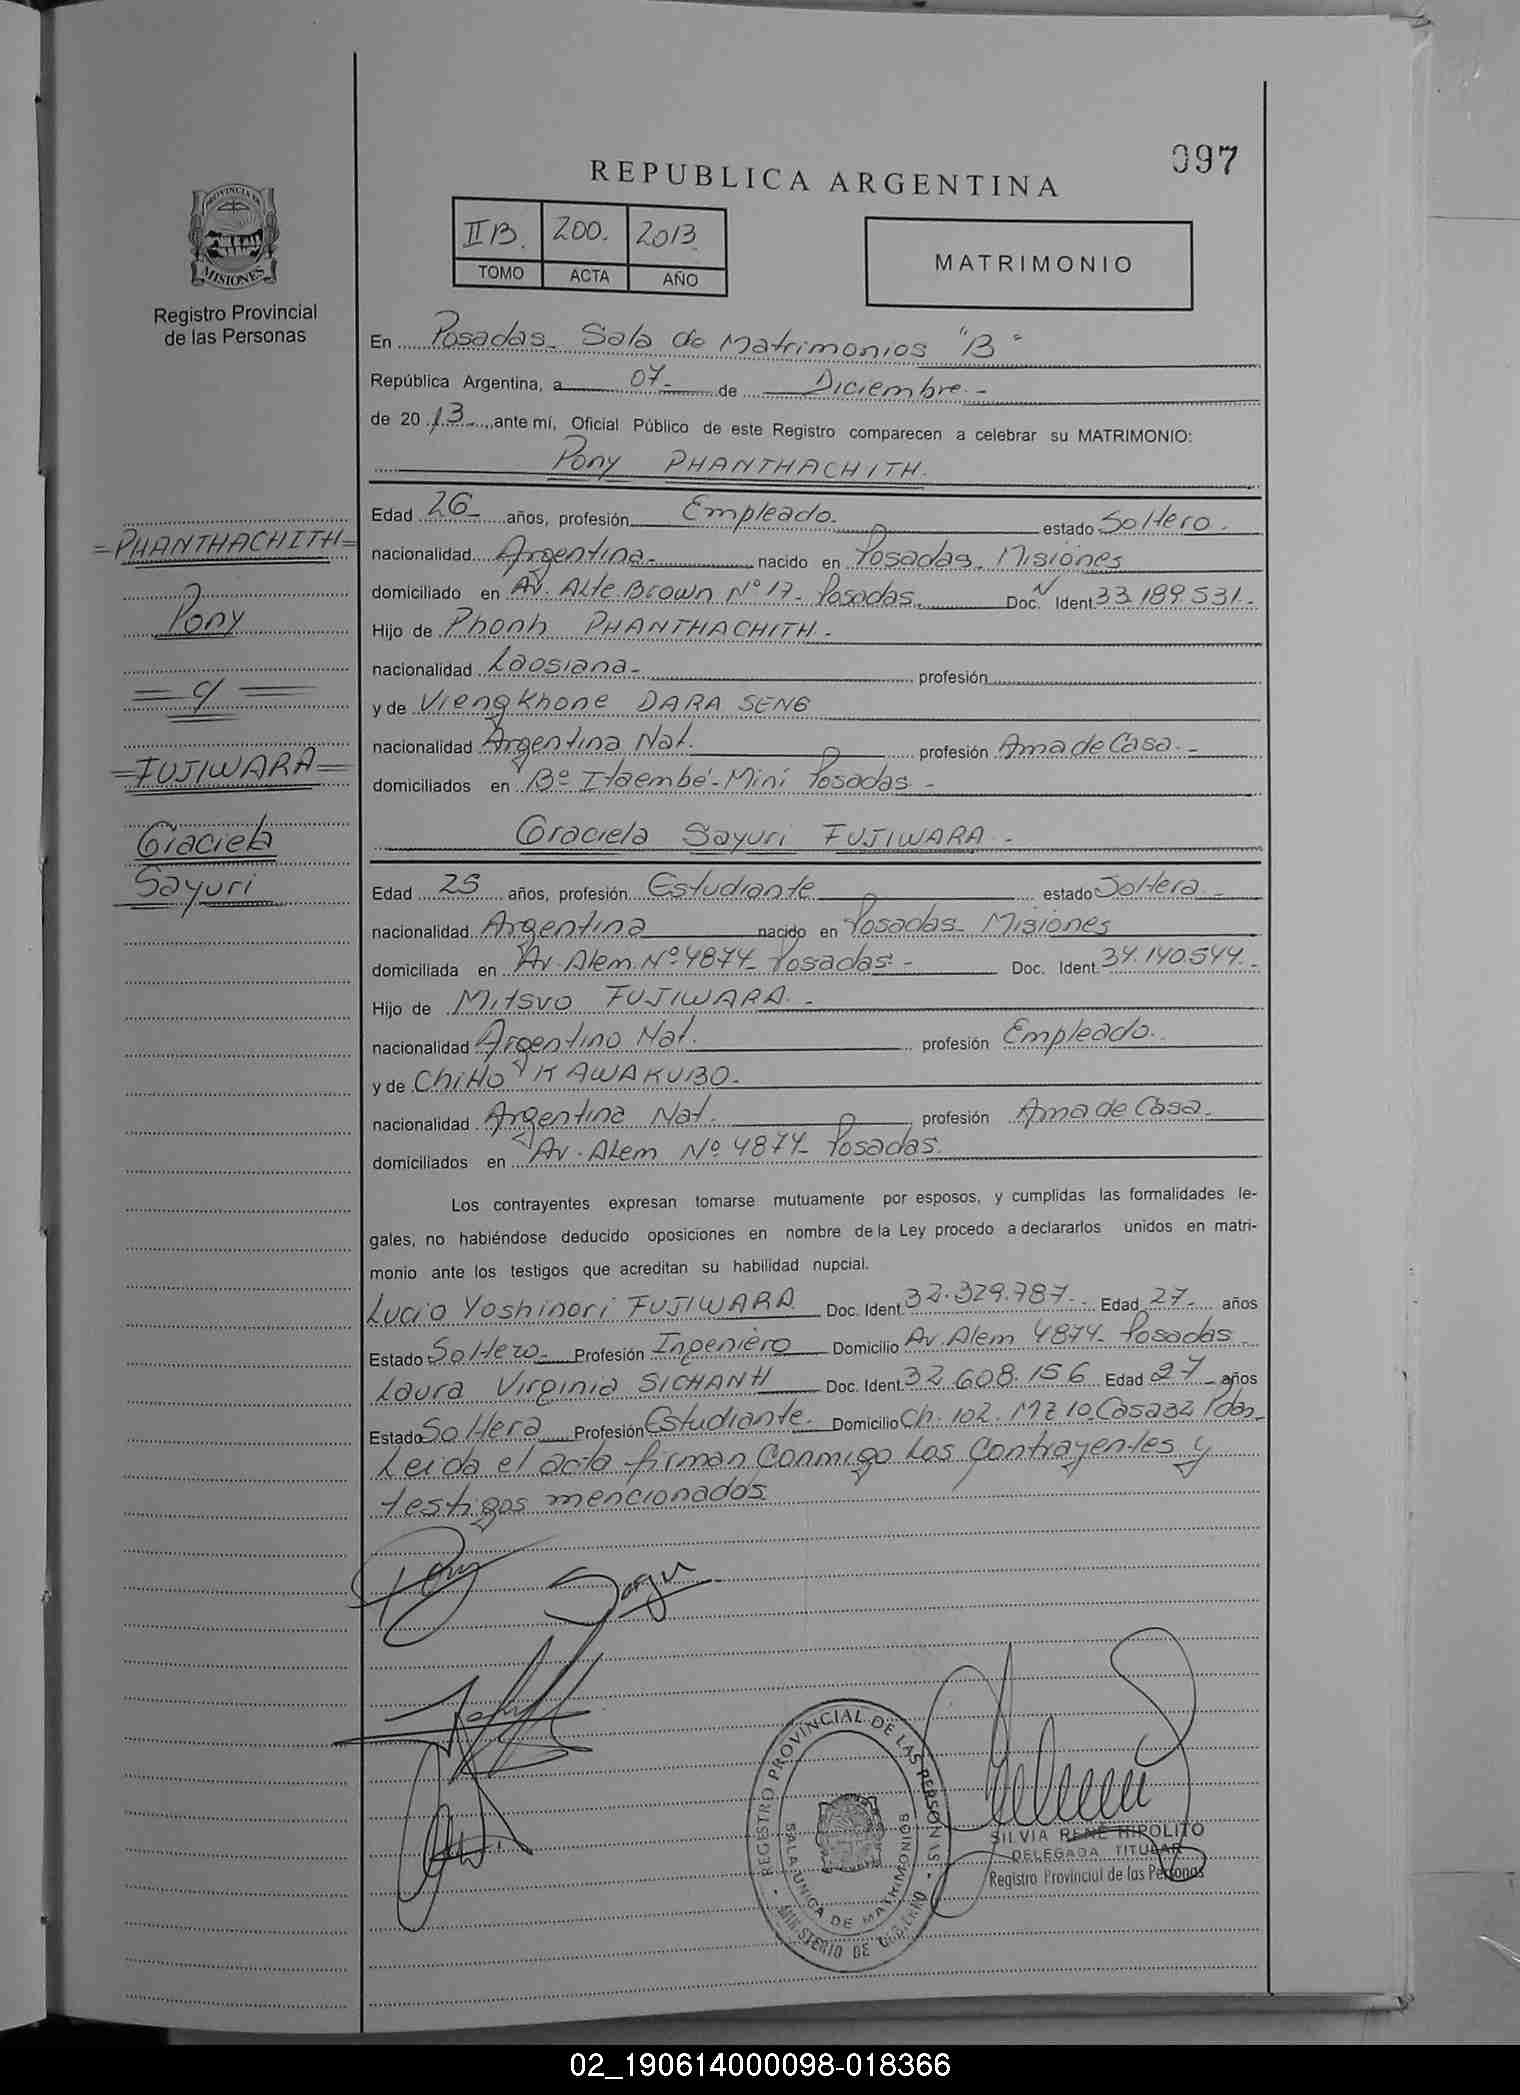 097
REPUBLICA ARGENTINA
PROVINCIA DE
MISIONES
Registro Provincial
de las Personas
II B. 200. 2013
TOMO ACTA AÑO
MATRIMONIO
En Posadas - Sala de Matrimonios "B"
República Argentina, a 07- de Diciembre. -
de 20 13 - ante mí, Oficial Público de este Registro comparecen a celebrar su MATRIMONIO:
Pony PHANTHACHITH.
Edad 26- años, profesión Empleado. estado Soltero.
=PHANTHACHITH=
nacionalidad Argentina- nacido en Posadas - Misiones
domiciliado en Av. Alte Brown Nº 17- Posadas. Doc. Ident 33.189.531.-
Pony
Hijo de Phonh PHANTHACHITH.-
nacionalidad Laosiana- profesión
= c/ =
y de Viengkhone DARA SENG
nacionalidad Argentina Nat. profesión Ama de Casa.-
=FUJIWARA=
domiciliados en Bº Itaembé-Miní Posadas -
Graciela Sayuri FUJIWARA.-
Graciela
Sayuri
Edad 25 años, profesión Estudiante estado Soltera.-
nacionalidad Argentina nacido en Posadas- Misiones
domiciliada en Av. Alem. Nº 4874- Posadas. - Doc. Ident. 34.140.544.-
Hijo de Mitsvo FUJIWARA. -
nacionalidad Argentino Nat. profesión Empleado.
y de Chitto KAWAKUBO.
nacionalidad Argentina Nat. profesión Ama de Casa.
domiciliados en Av. Alem Nº 4874- Posadas.
Los contrayentes expresan tomarse mutuamente por esposos, y cumplidas las formalidades le-
gales, no habiéndose deducido oposiciones en nombre de la Ley procedo a declararlos unidos en matri-
monio ante los testigos que acreditan su habilidad nupcial.
Lucio Yoshinori FUJIWARA Doc. Ident. 32.329.787. Edad 27- años
Estado Soltero- Profesión Ingeniero Domicilio Av. Alem 4874- Posadas
Laura Virginia SICHANH Doc. Ident. 32.608.156 Edad 27- años
Estado Soltera Profesión Estudiante. Domicilio Ch. 102. Mz 10. Casa 32 Pdas.
Leida el acta firman conmigo los contrayentes y
testigos mencionados
Pony Sayu
REGISTRO PROVINCIAL DE LAS PERSONAS
SALA UNICA DE MATRIMONIOS
MINISTERIO DE GOBIERNO
SILVIA RENÉ HIPOLITO
DELEGADA TITULAR
Registro Provincial de las Personas
02_190614000098-018366